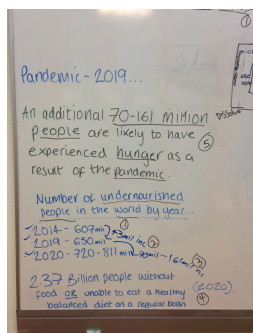 ①
Pandemic - 2019...
An additional 70-161 million
people are likely to have
experienced hunger as a
result of the pandemic.
⑤
Dissolve
Number of undernourished
people in the world by year...
①
2014 - 607mil
2019 - 650mil
2020 - 720-811mil
②
③
2.37 Billion people without
food OR unable to eat a healthy
balanced diet on a regular basis
(2020).
④